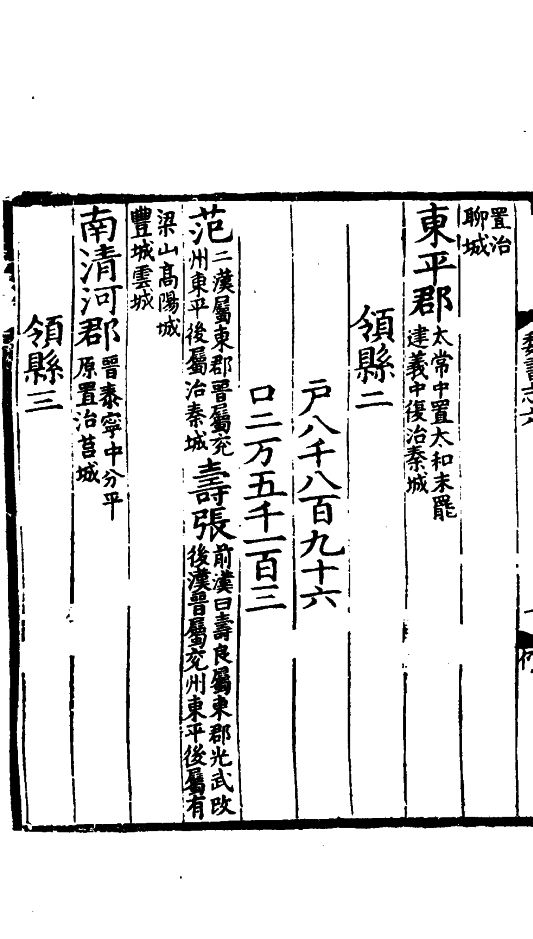 置治
聊城
東平郡太常中置太和末罷
建義中復治秦城
領縣二
戸八千八百九十六
口二万五千一百三
范二漢屬東郡晉屬兖
州東平後屬治秦城
壽張前漢曰壽良屬東郡光武改
後漢晉屬兖州東平後屬有
梁山高陽城
豐城雲城
南清河郡晉泰寧中分平
原置治莒城
領縣三